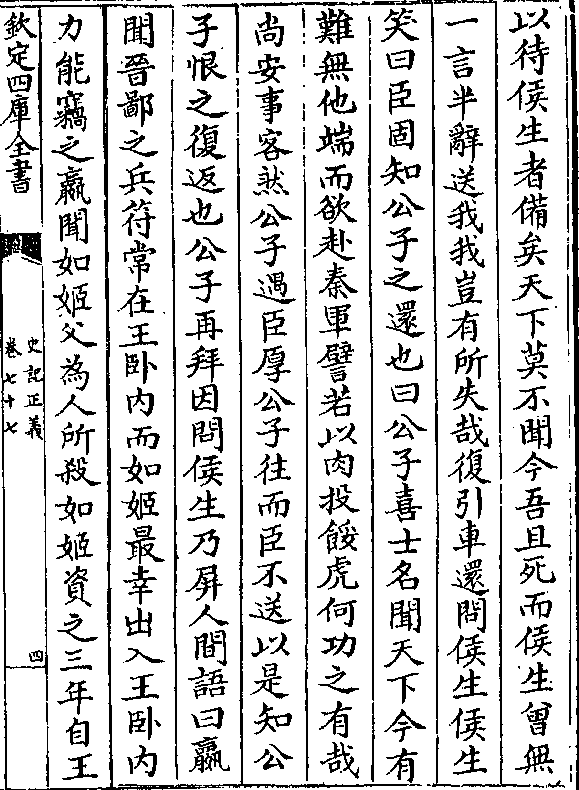 以待侯生者備矣天下莫不聞今吾且死而侯生曾無
一言半辭送我我豈有所失哉復引車還問侯生侯生
笑曰臣固知公子之還也曰公子喜士名聞天下今有
難無他端而欲赴秦軍譬若以肉投餒虎何功之有哉
尚安事客然公子遇臣厚公子往而臣不送以是知公
子恨之復返也公子再拜因問侯生乃屏人間語曰嬴
聞晉鄙之兵符常在王卧内而如姬最幸出入王卧内
力能竊之嬴聞如姬父為人所殺如姬資之三年自王
欽定四庫全書
史記正義
卷七十七
四